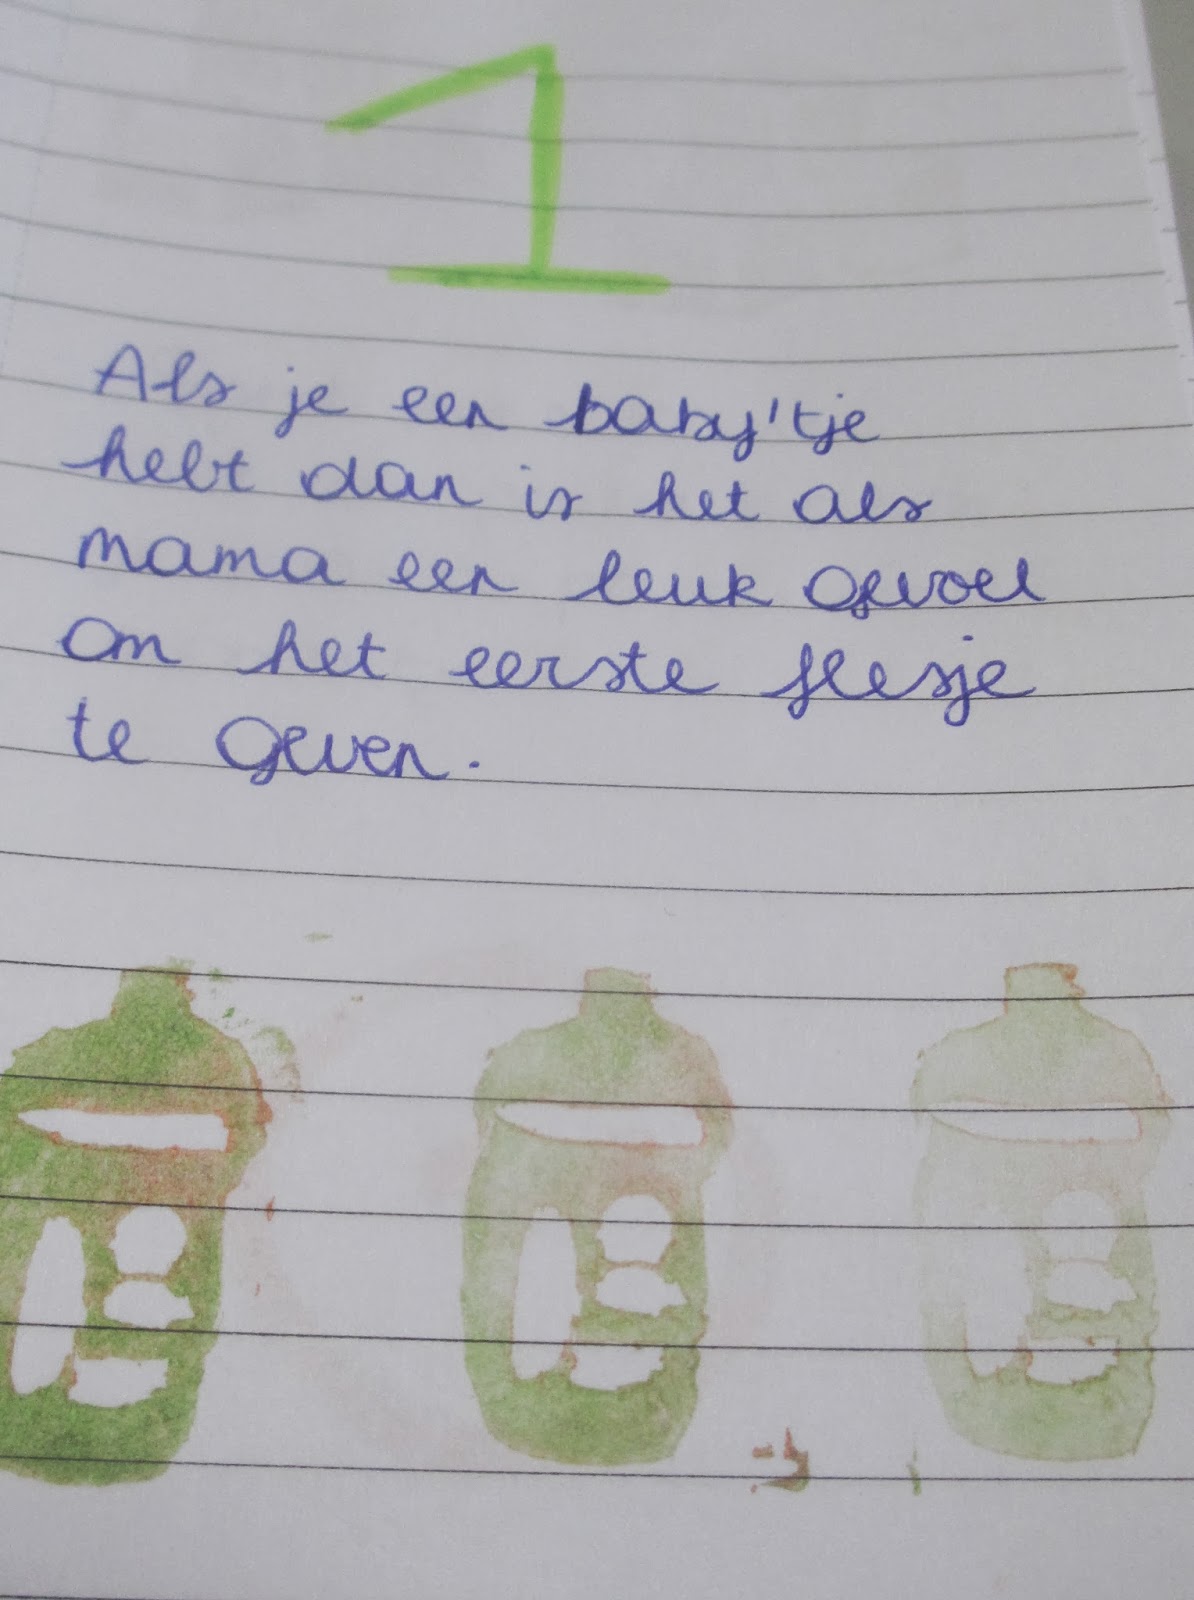 1
Als je een baby'tje
hebt dan is het als
mama een leuk gevoel
om het eerste flesje
te geven.